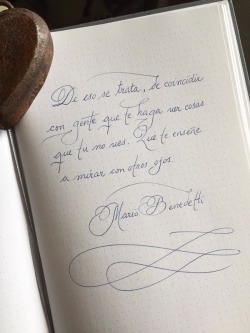 De eso se trata, de coincidir
con gente que te haga ver cosas
que tu no ves. Que te enseñe
a mirar con otros ojos.
Mario Benedetti